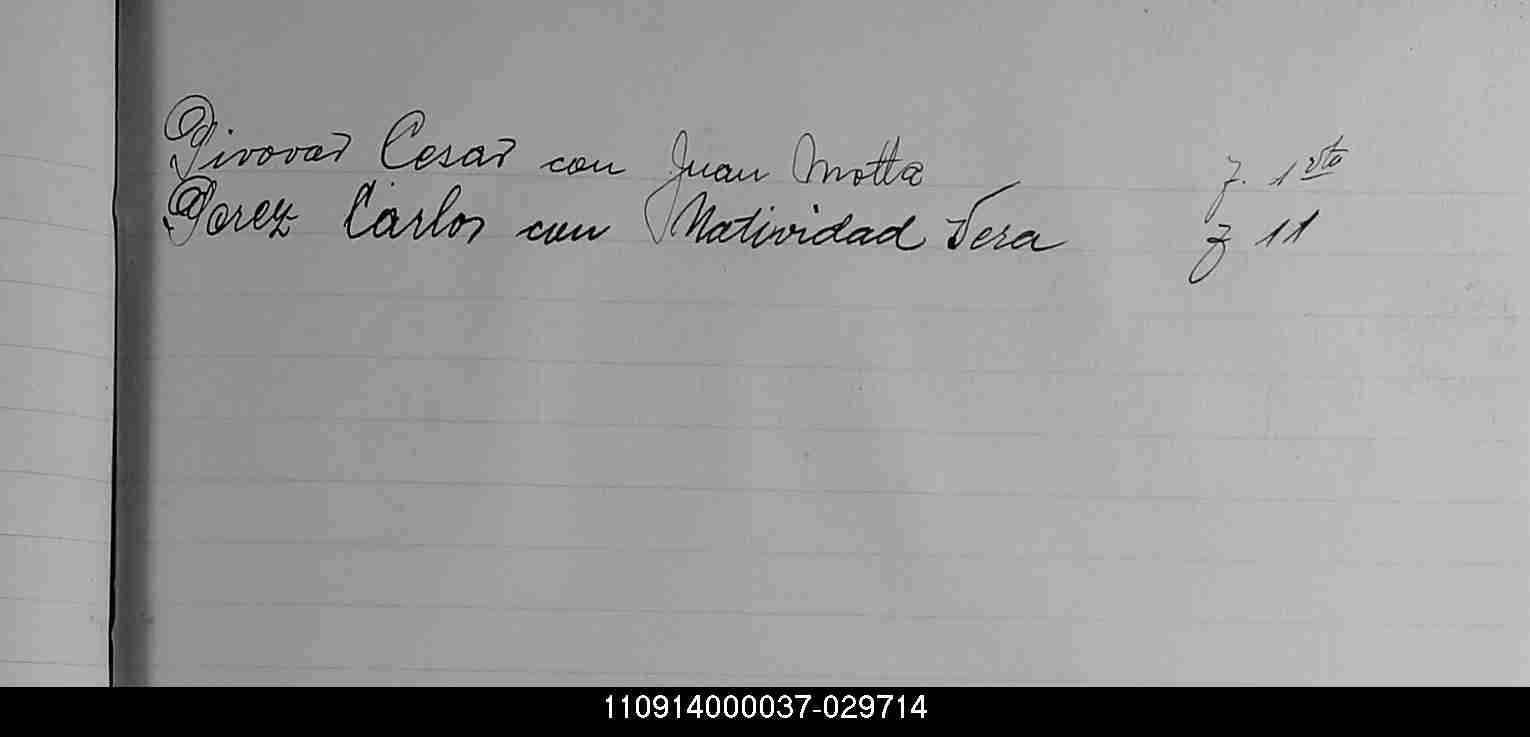 Pivovar Cesar con Juan Motta f. 1 vto
Perez Carlos con Natividad Vera f 11
110914000037-029714